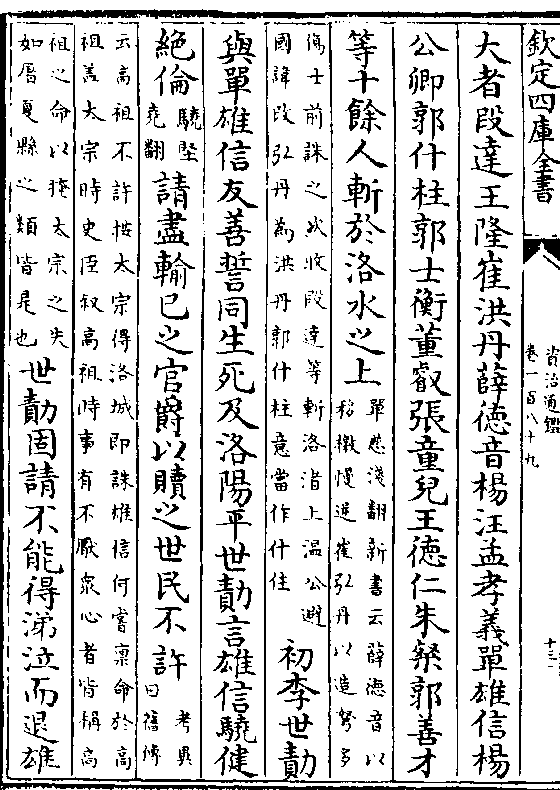 欽定四庫全書
資治通鑑
卷一百八十九
十三
大者段達王隆崔洪丹薛德音楊汪孟孝義單雄信楊
公卿郭什柱郭士衡董叡張童兒王德仁朱粲郭善才
等十餘人斬於洛水之上
單慈淺翻新書云薛德音以
移檄慢逆崔弘丹以造弩多
傷士前誅之或收段達等斬洛渚上温公避
國諱改弘丹為洪丹郭什柱意當作什住
初李世勣
與單雄信友善誓同生死及洛陽平世勣言雄信驍健
絶倫
驍堅
堯翻
請盡輸己之官爵以贖之世民不許
考異
曰舊傳
云高祖不許按太宗得洛城即誅雄信何嘗稟命於高
祖蓋太宗時史臣叙高祖時事有不厭衆心者皆稱高
祖之命以掩太宗之失
如屠夏縣之類皆是也
世勣固請不能得涕泣而退雄